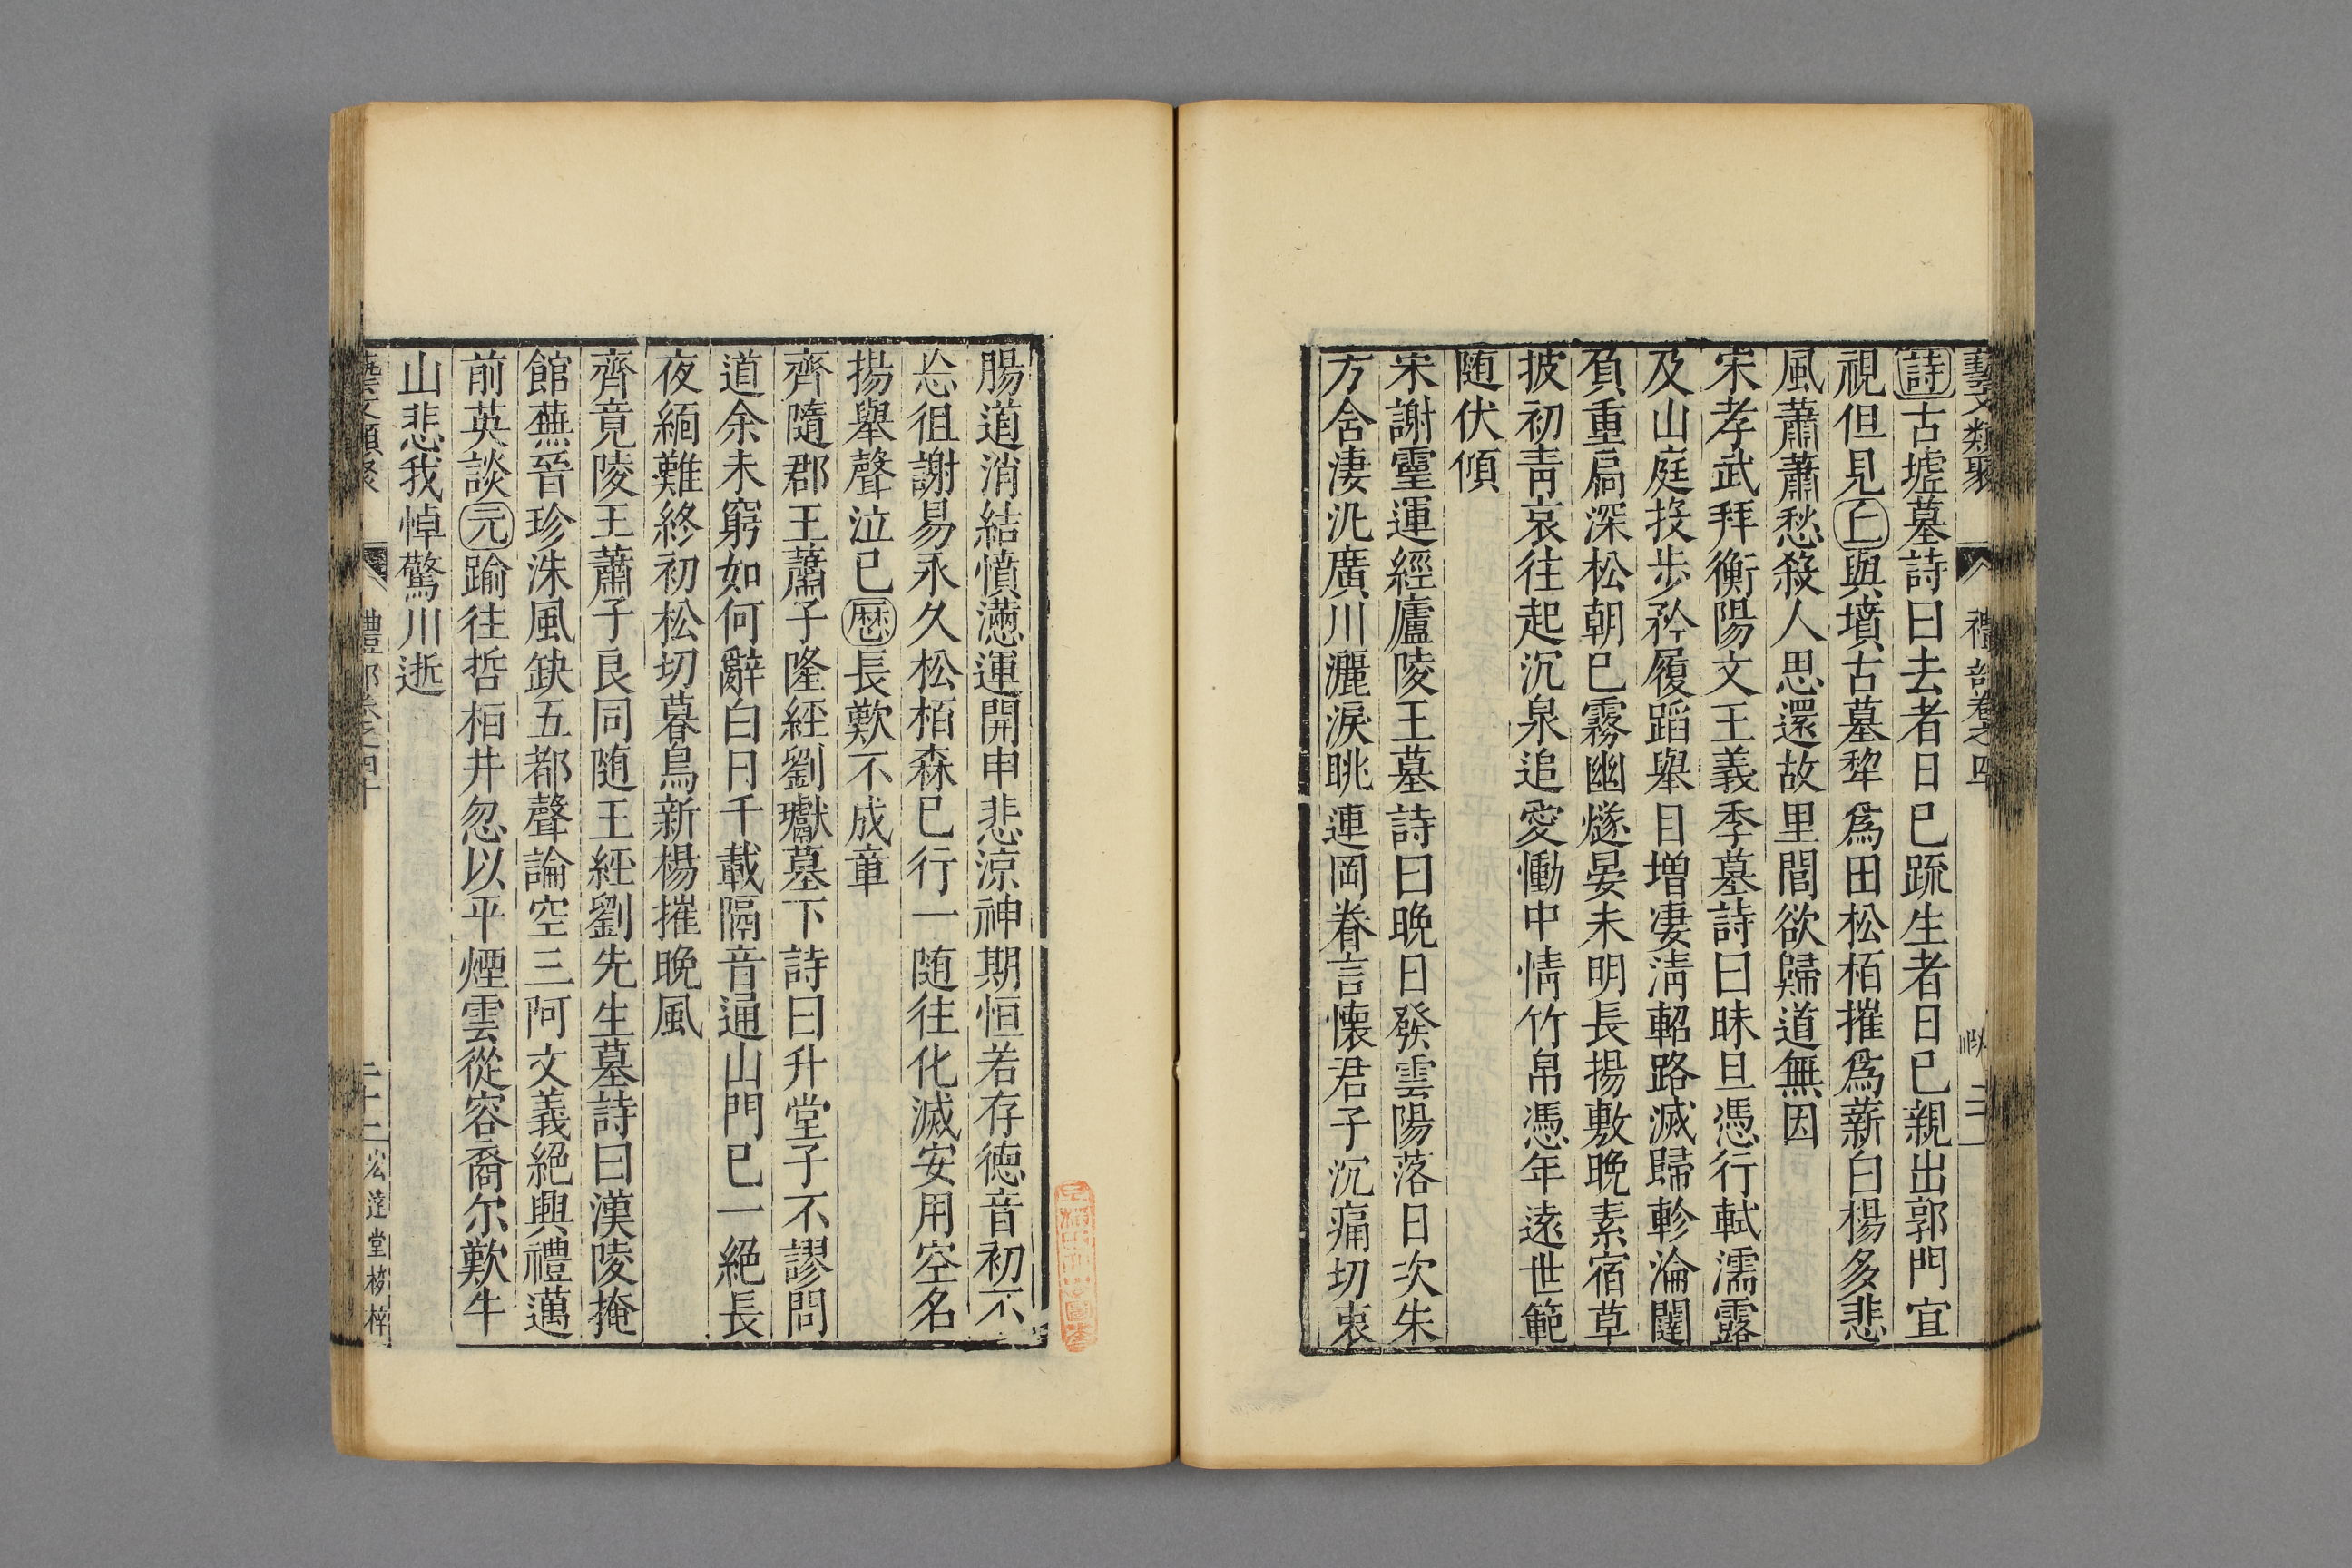 藝文類聚 禮部卷之四
詩古墟墓詩曰去者日已疏生者日已親出郭門宜
視但見丘與墳古墓犂爲田松栢摧爲薪白楊多悲
風蕭蕭愁殺人思還故里閭欲歸道無因
宋孝武拜衡陽文王義季墓詩曰昧旦憑行軾濡露
及山庭投步矜履蹈舉目增凄淸軺路滅歸軫淪闥
負重扃深松朝已霧幽燧晏未明長揚敷晚素宿草
披初靑哀往起沉泉追愛慟中情竹帛憑年遠世範
随伏傾
宋謝靈運經廬陵王墓詩曰晚日發雲陽落日次朱
方含淒汎廣川灑淚眺連岡眷言懷君子沉痛切衷
腸道消結憤懣運開申悲凉神期恒若存徳音初不
忘徂謝易永久松栢森已行一随往化滅安用空名
揚舉聲泣已歷長歎不成章
齊隨郡王蕭子隆經劉瓛墓下詩曰升堂子不謬問
道余未窮如何辭白日千載隔音通山門已一絕長
夜緬難終初松切暮鳥新楊摧晚風
齊竟陵王蕭子良同随王經劉先生墓詩曰漢陵掩
館蕪晉珍洙風缺五都聲論空三阿文義絕興禮邁
前英談元踰往哲栢井忽以平煙雲從容裔尔歎牛
山悲我悼驚川逝
藝文類聚 禮部卷之四十 二十二 宏達堂校梓